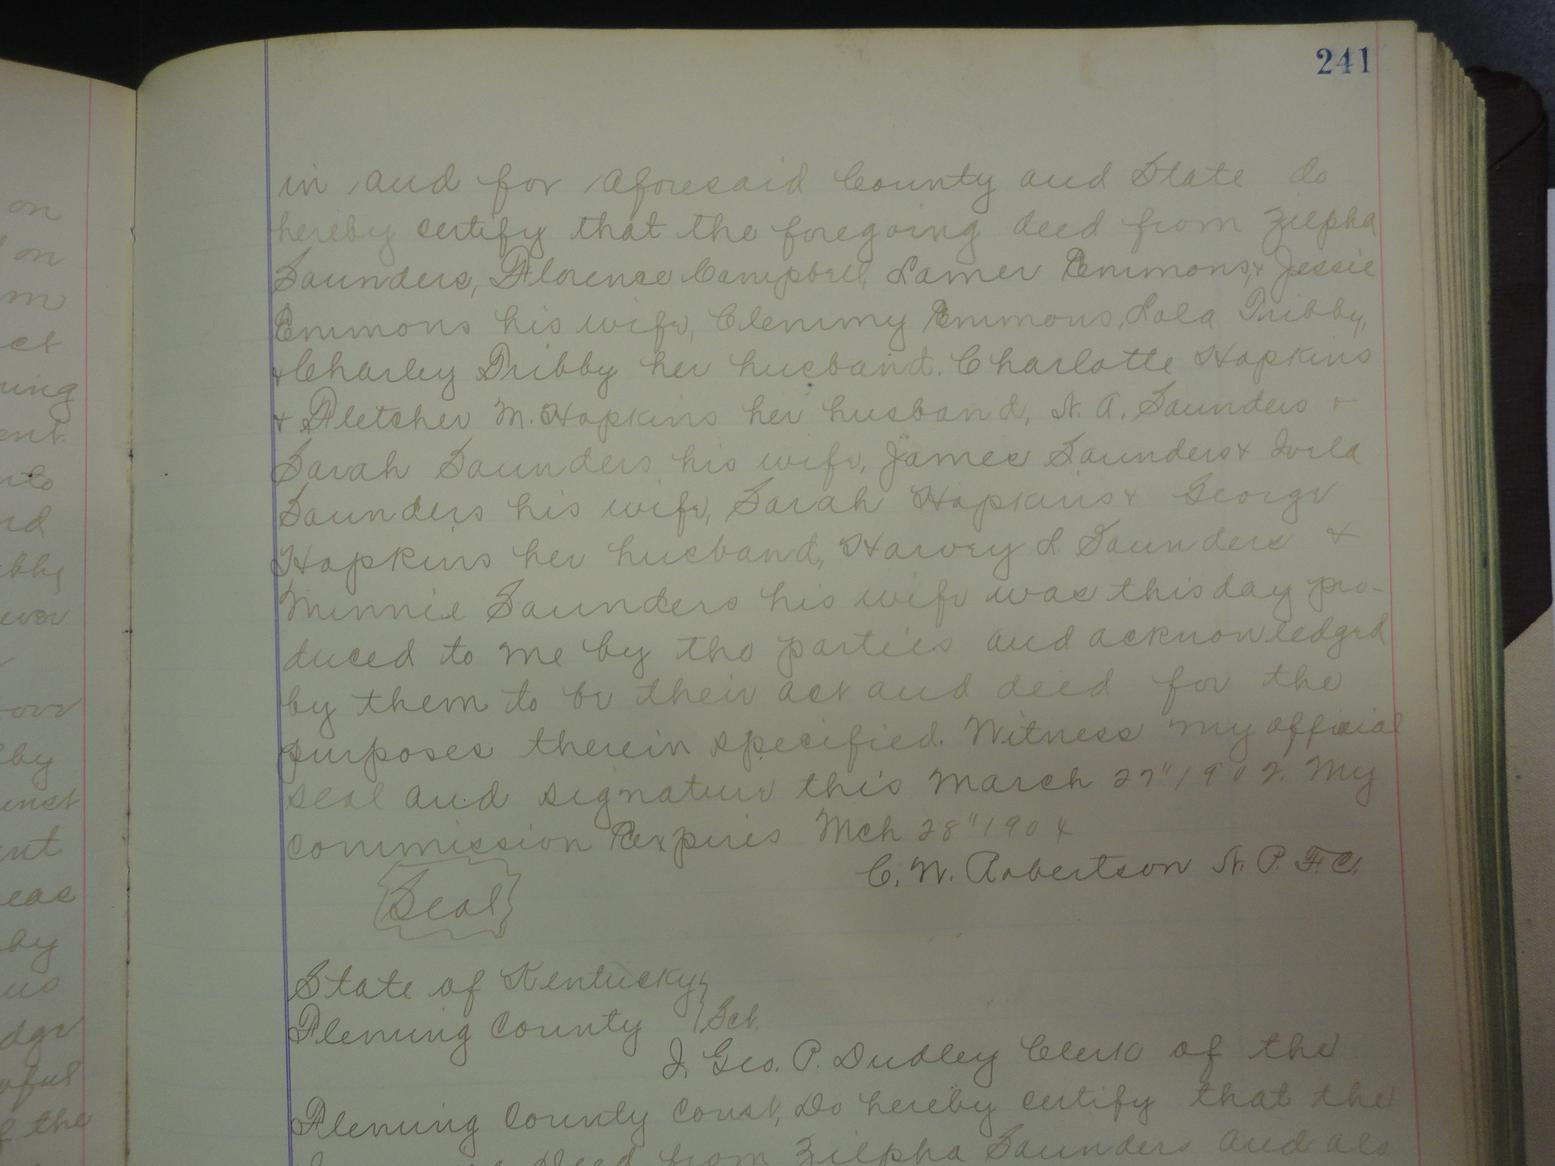 241
in and for aforesaid County and State do
hereby certify that the foregoing deed from Zilpha
Saunders, Florence Campbell, Lamer Emmons, & Jessie
Emmons his wife, Clemmy Emmons, Lola Tribby,
& Charley Tribby her husband. Charlotte Hopkins
& Fletcher M. Hopkins her husband, N. A. Saunders &
Sarah Saunders his wife, James Saunders &
Saunders his wife, Sarah Hopkins & George
Hopkins her husband, Harvey L Saunders &
Minnie Saunders his wife was this day pro-
duced to me by the parties and acknowledged
by them to be their act and deed for the
purposes therein specified. Witness my official
seal and signature this March 27" 1902. My
commission Expires Mch 28" 1904
C. W. Robertson N. P. F. C.
Seal
State of Kentucky
Fleming County } Sct.
I, Geo. P. Dudley Clerk of the
Fleming County Court, Do hereby certify that the
Deed from Zilpha Saunders and als
on
on
m
ct
ring
ent
rd
ever
over
by
inst
ent
eas
by
us
edge
of the